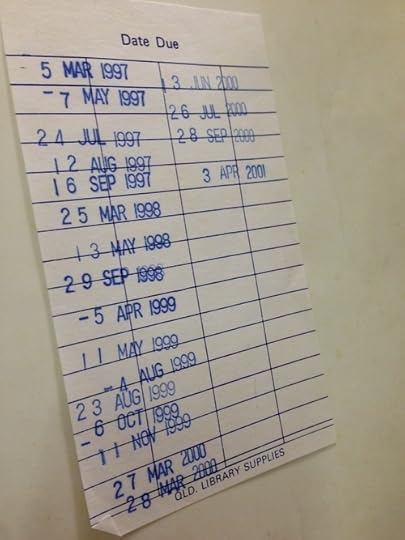 Date Due
5 MAR 1997
- 7 MAY 1997
24 JUL 1997
12 AUG 1997
16 SEP 1997
25 MAR 1998
13 MAY 1998
29 SEP 1998
- 5 APR 1999
11 MAY 1999
- 4 AUG 1999
23 AUG 1999
- 6 OCT 1999
11 NOV 1999
27 MAR 2000
28 MAR 2000
13 JUN 2000
26 JUL 2000
28 SEP 2000
3 APR 2001
QLD. LIBRARY SUPPLIES